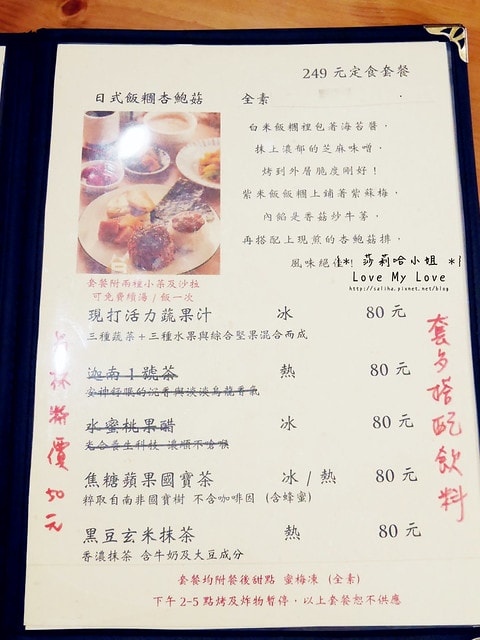 249 元定食套餐
日式飯糰杏鮑菇 全素
白米飯糰裡包著海苔醬,
抹上濃郁的芝麻味噌,
烤到外層脆度剛好!
紫米飯飯糰上鋪著紫蘇梅,
內餡是香菇炒牛蒡,
再搭配上現煎的杏鮑菇排,
風味絕佳
*! 莎莉哈小姐 *!
Love My Love
http://saliha.pixnet.net/blog
套餐附兩種小菜及沙拉
可免費續湯/飯一次
現打活力蔬果汁 冰 80 元
三種蔬菜+三種水果與綜合堅果混合而成
迦南 1 號茶 熱 80 元
安神舒眠的沉香與淡淡烏龍香氣
水蜜桃果醋 冰 80 元
光合養生科技 濃順不嗆喉
焦糖蘋果國寶茶 冰/熱 80 元
粹取自南非國寶樹 不含咖啡因 (含蜂蜜)
黑豆玄米抹茶 熱 80 元
香濃抹茶 含牛奶及大豆成分
杯特價 50元
飲料
套餐均附餐後甜點 蜜梅凍 (全素)
下午 2-5 點烤及炸物暫停,以上套餐恕不供應